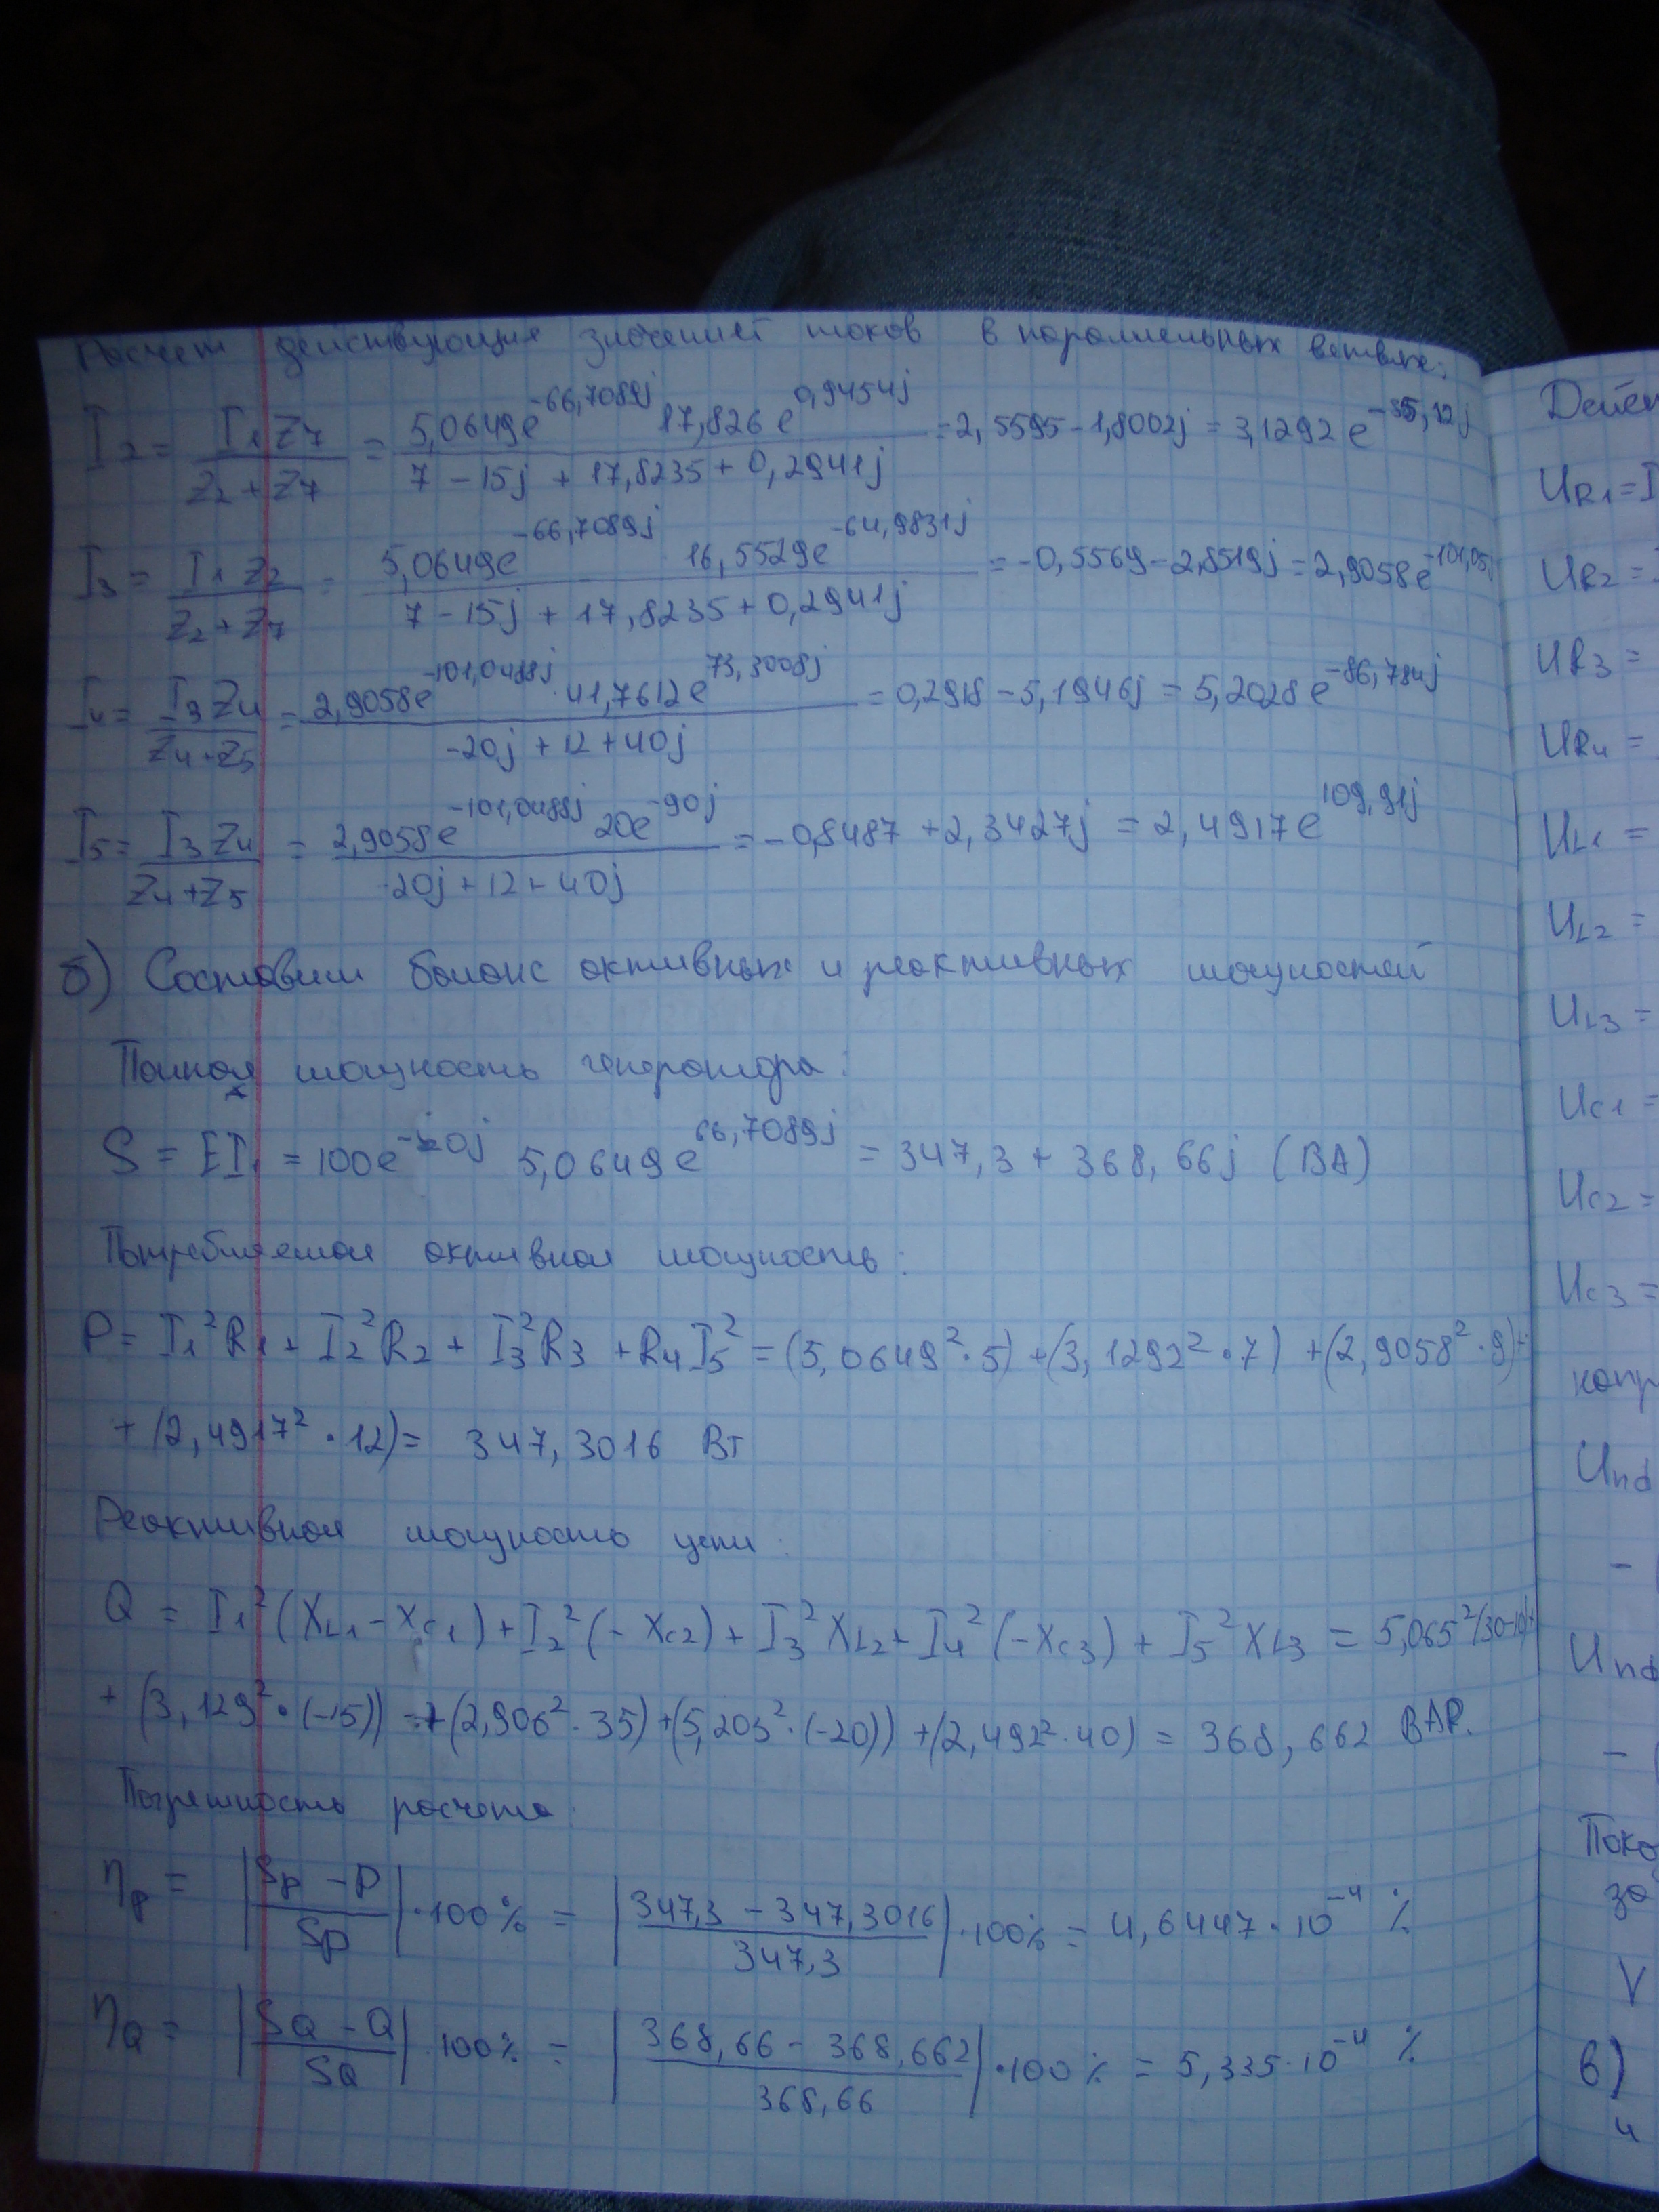 Расчет действующие значений токов в параллельных ветвях:
I2 = I1 Z7 / (Z2 + Z7) = 5,0649e^-66,7089j 17,826e^0,9454j / (7 - 15j + 17,8235 + 0,2941j) = 2,5595 - 1,8002j = 3,1292e^-35,12j
I3 = I1 Z2 / (Z2 + Z7) = 5,0649e^-66,7089j 16,5529e^-64,9831j / (7 - 15j + 17,8235 + 0,2941j) = -0,5569 - 2,8519j = 2,9058e^-101,05j
I4 = I3 Z4 / (Z4 + Z5) = 2,9058e^-101,0488j · 41,7612e^73,3008j / (-20j + 12 + 40j) = 0,2918 - 5,1946j = 5,2028e^-86,784j
I5 = I3 Z4 / (Z4 + Z5) = 2,9058e^-101,0488j 20e^-90j / (-20j + 12 + 40j) = -0,8487 + 2,3427j = 2,4917e^109,91j
б) Составим баланс активных и реактивных мощностей
Полная мощность генератора:
S = EI1 = 100e^-20j 5,0649e^66,7089j = 347,3 + 368,66j (ВА)
Потребляемая активная мощность:
P = I1²R1 + I2²R2 + I3²R3 + R4I5² = (5,0649² · 5) + (3,1292² · 7) + (2,9058² · 9) +
+ (2,4917² · 12) = 347,3016 Вт
Реактивная мощность цепи:
Q = I1²(XL1 - XC1) + I2²(-XC2) + I3²XL2 + I4²(-XC3) + I5²XL3 = 5,065²(30-10)+
+ (3,129² · (-15)) + (2,906² · 35) + (5,203² · (-20)) + (2,492² · 40) = 368,662 ВАР.
Погрешность расчета:
ηp = |(Sp - P) / Sp| · 100% = |(347,3 - 347,3016) / 347,3| · 100% = 4,6447 · 10^-4 %
ηQ = |(SQ - Q) / SQ| · 100% = |(368,66 - 368,662) / 368,66| · 100% = 5,335 · 10^-4 %
Дейст
UR1 = I
UR2 =
UR3 =
UR4 =
UL1 =
UL2 =
UL3 =
UC1 =
UC2 =
UC3 =
напр
-
-
Пока
за
V
в)
и